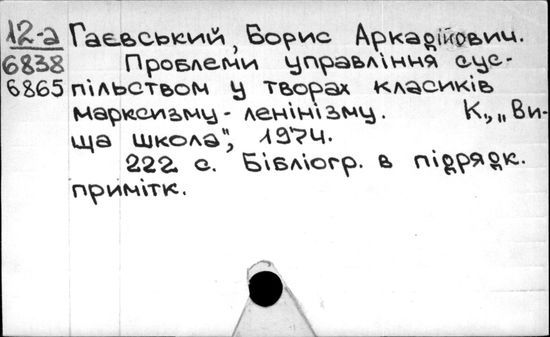 12-а Гаєвський, Борис Аркадійович.
6838 Проблеми управління сус-
6865 пільством у творах класиків
марксизму-ленінізму. К., „Ви-
ща школа", 1974.
222 с. Бібліогр. в підрядк.
примітк.